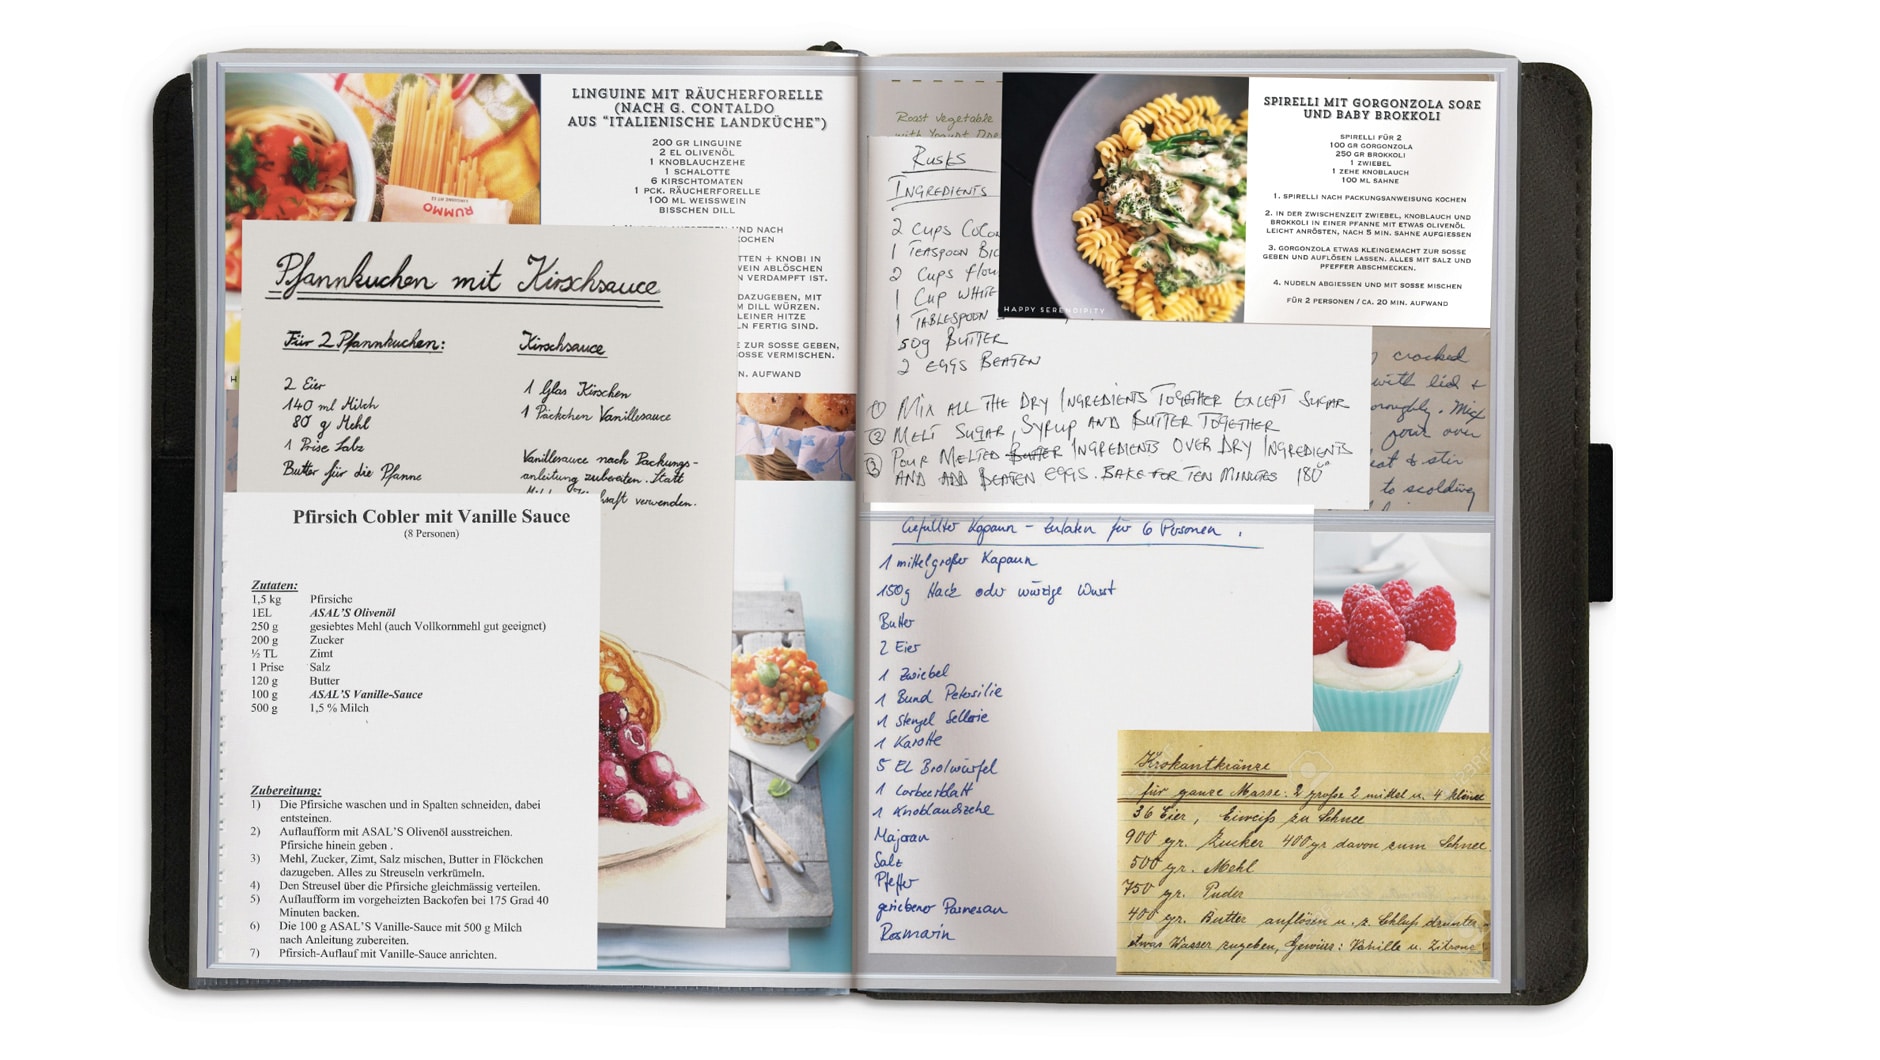 LINGUINE MIT RÄUCHERFORELLE
(NACH G. CONTALDO
AUS "ITALIENISCHE LANDKÜCHE")
200 GR LINGUINE
2 EL OLIVENÖL
1 KNOBLAUCHZEHE
1 SCHALOTTE
6 KIRSCHTOMATEN
1 PCK. RÄUCHERFORELLE
100 ML WEISSWEIN
BISSCHEN DILL
UND NACH
KOCHEN
TTEN + KNOBI IN
WEIN ABLÖSCHEN
N VERDAMPFT IST.
DAZUGEBEN, MIT
M DILL WÜRZEN.
LEINER HITZE
LN FERTIG SIND.
E ZUR SOSSE GEBEN,
OSSE VERMISCHEN.
N. AUFWAND
RUMMO
H
Pfannkuchen mit Kirschsauce
Für 2 Pfannkuchen:
2 Eier
140 ml Milch
80 g Mehl
1 Prise Salz
Butter für die Pfanne
Kirschsauce
1 Glas Kirschen
1 Päckchen Vanillesauce
Vanillesauce nach Packungs-
anleitung zubereiten. Statt
saft verwenden.
Pfirsich Cobler mit Vanille Sauce
(8 Personen)
Zutaten:
1,5 kg Pfirsiche
1EL ASAL'S Olivenöl
250 g gesiebtes Mehl (auch Vollkornmehl gut geeignet)
200 g Zucker
½ TL Zimt
1 Prise Salz
120 g Butter
100 g ASAL'S Vanille-Sauce
500 g 1,5 % Milch
Zubereitung:
1) Die Pfirsiche waschen und in Spalten schneiden, dabei
entsteinen.
2) Auflaufform mit ASAL'S Olivenöl ausstreichen.
Pfirsiche hinein geben .
3) Mehl, Zucker, Zimt, Salz mischen, Butter in Flöckchen
dazugeben. Alles zu Streuseln verkrümeln.
4) Den Streusel über die Pfirsiche gleichmässig verteilen.
5) Auflaufform im vorgeheizten Backofen bei 175 Grad 40
Minuten backen.
6) Die 100 g ASAL'S Vanille-Sauce mit 500 g Milch
nach Anleitung zubereiten.
7) Pfirsich-Auflauf mit Vanille-Sauce anrichten.
Roast vegetable
with Yogurt
Rusks
INGREDIENTS
2 CUPS
1 TEASPOON
2 Cups flou
1 CUP WHITE
1 TABLESPOON
50g BUTTER
2 EGGS BEATEN
① MIX ALL THE DRY INGREDIENTS TOGETHER EXCEPT SUGAR
② MELT SUGAR, SYRUP AND BUTTER TOGETHER
③ POUR MELTED BUTTER INGREDIENTS OVER DRY INGREDIENTS
AND ADD BEATEN EGGS. BAKE FOR TEN MINUTES 180°
HAPPY SERENDIPITY
SPIRELLI MIT GORGONZOLA SOßE
UND BABY BROKKOLI
SPIRELLI FÜR 2
100 GR GORGONZOLA
250 GR BROKKOLI
1 ZWIEBEL
1 ZEHE KNOBLAUCH
100 ML SAHNE
1. SPIRELLI NACH PACKUNGSANWEISUNG KOCHEN
2. IN DER ZWISCHENZEIT ZWIEBEL, KNOBLAUCH UND
BROKKOLI IN EINER PFANNE MIT ETWAS OLIVENÖL
LEICHT ANRÖSTEN, NACH 5 MIN. SAHNE AUFGIESSEN
3. GORGONZOLA ETWAS KLEINGEMACHT ZUR SOSSE
GEBEN UND AUFLÖSEN LASSEN. ALLES MIT SALZ UND
PFEFFER ABSCHMECKEN.
4. NUDELN ABGIESSEN UND MIT SOSSE MISCHEN
FÜR 2 PERSONEN / CA. 20 MIN. AUFWAND
cracked
with lid +
oroughly. Mix
pour over
eat & stir
to scolding
Gefüllter Kapaun - Zutaten für 6 Personen.
1 mittelgroßer Kapaun
150g Hack oder würzige Wurst
Butter
2 Eier
1 Zwiebel
1 Bund Petersilie
1 Stengel Sellerie
1 Karotte
5 EL Brotwürfel
1 Lorbeerblatt
1 Knoblauchzehe
Majoran
Salz
Pfeffer
geriebener Parmesan
Rosmarin
Krokantkränze
für ganze Masse: 2 große 2 mittel u. 4 kleine
36 Eier, Eiweiß zu Schnee
900 gr. Zucker 400 gr davon zum Schnee.
500 gr. Mehl
750 gr. Puder
400 gr. Butter auflösen u. z. Schluß drunter
etwas Wasser zugeben, Gewürz: Vanille u. Zitrone